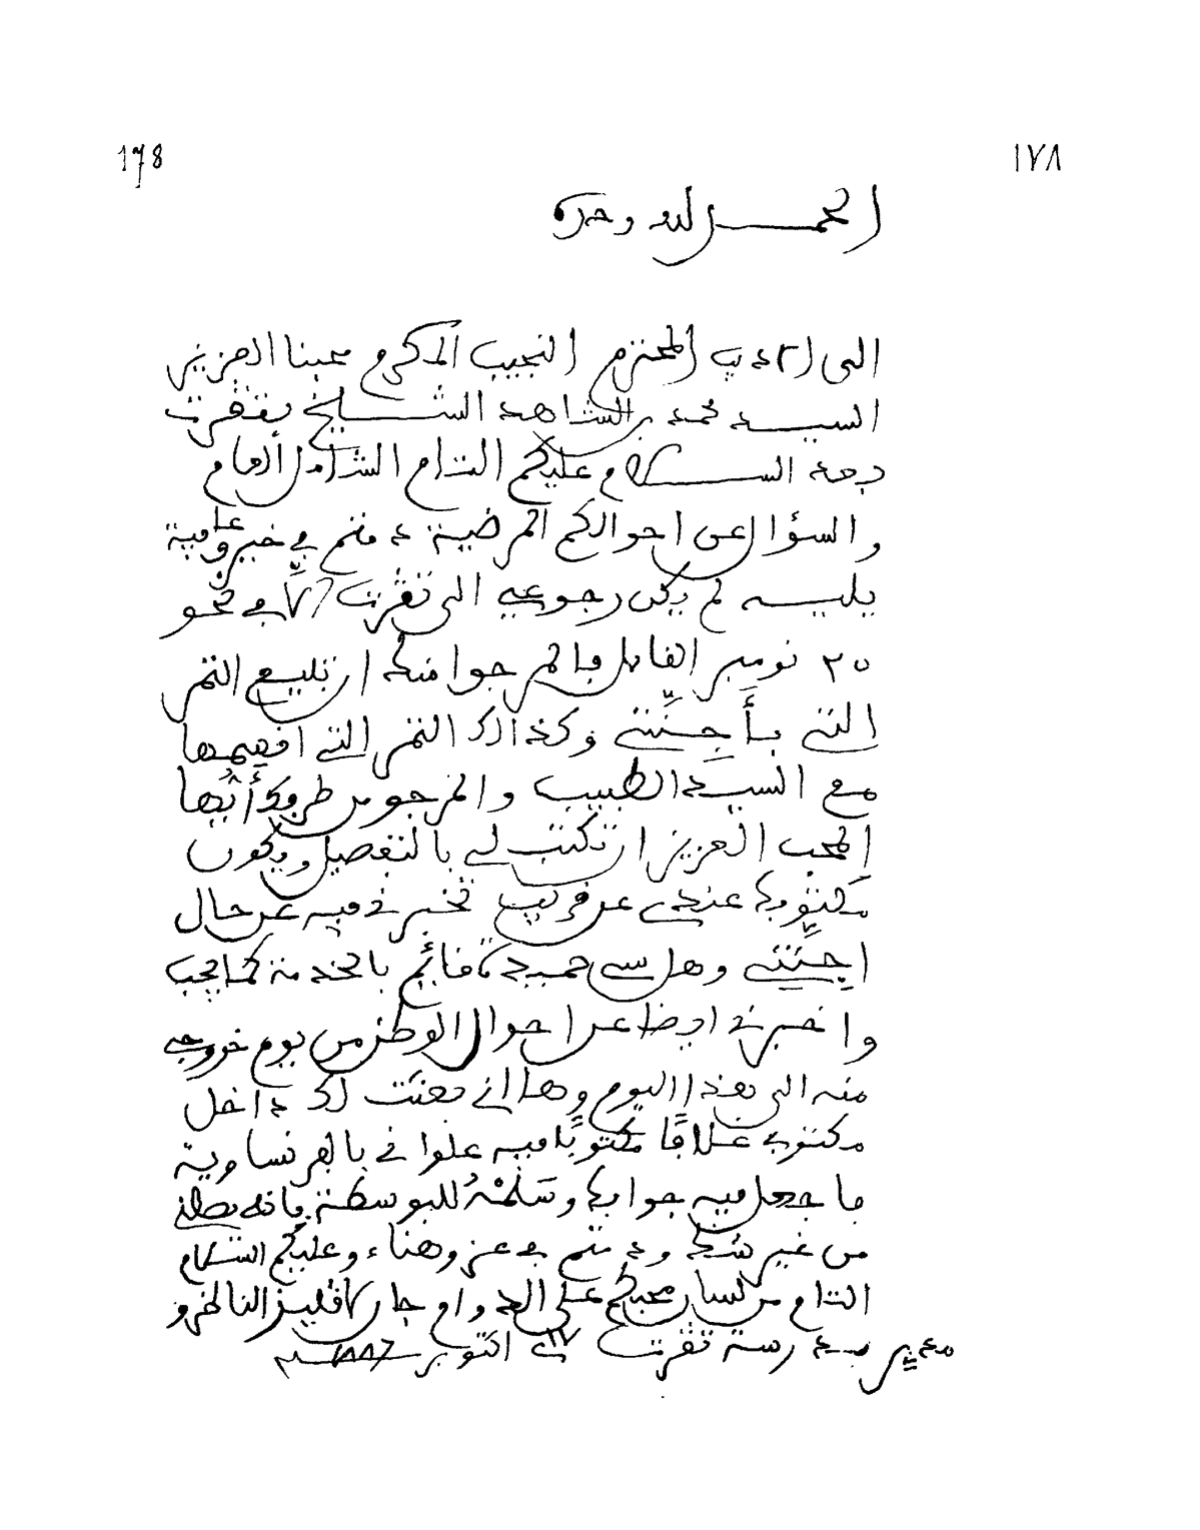 178 ١٧٨
الحمد لله وحده
الى الاديب المحترم النجيب المكرم محبنا العزيز
السيد محمد بن الشاهد الشيخ بتقرت
وبعد السلام عليكم التام الشامل العام
والسؤال عن احوالكم المرضية دمتم في خير وعافية
يليه لم يكن رجوعي الى تقرت الا في نحو
٢٥ نومبر القابل فالمرجوا منك ان تبيع التمر
التي بأجنّتي وكذالك التمر التي افهمها
مع السيد الطبيب والمرجو من طرفك أيّها
المحب العزيز ان تكتب لي بالتفصيل ويكون
مكتوبك عندي عن قريب تخبرني فيه عن حال
اجنّتي وهل سي حميدة قائم بالخدمة كما يجب
واخبرني ايضا عن احوال الوطن من يوم خروجي
منه الى هذا اليوم وها اني بعثت لك داخل
مكتوبي غلافًا مكتوبًا فيه علواني بالفرنساوية
فاجعل فيه جوابك وسَلّمْهُ للبوسطة فانه يصلني
من غير شك ودمتم في عز وهناء وعليكم السلام
التام من لسان محبكم على الدوام جان
مدير مدرسة تقرت ١٧ اكتوبر سنة ١٨٨٦